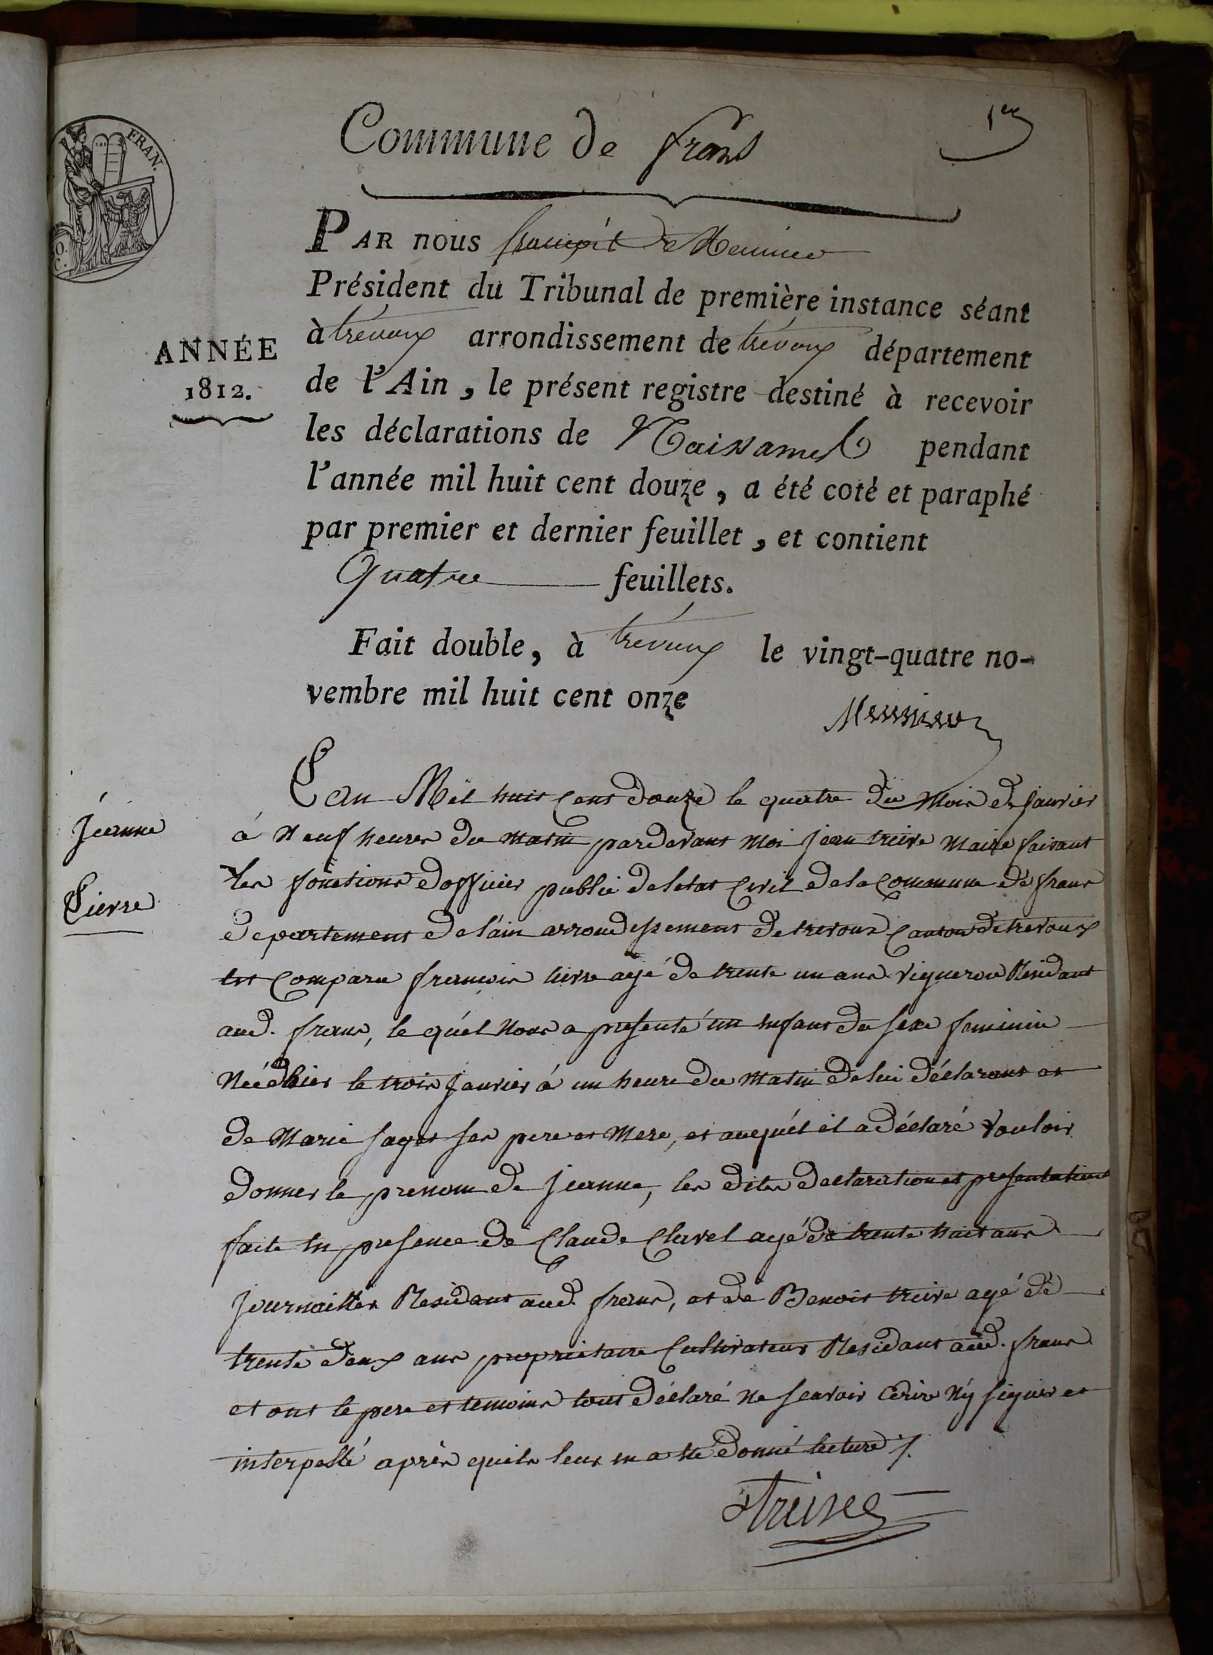 Commune de frans
1er
FRAN.
PAR nous françois de Meunier
Président du Tribunal de première instance séant
à trévoux arrondissement de trévoux département
ANNÉE
1812.
de l'Ain, le présent registre destiné à recevoir
les déclarations de Naissances pendant
l'année mil huit cent douze, a été coté et paraphé
par premier et dernier feuillet, et contient
Quatre feuillets.
Fait double, à trévoux le vingt-quatre no-
vembre mil huit cent onze
L'an Mil huit Cent douze le quatre du Mois de janvier
Jeanne
à Neuf heures du matin pardevant Moi jean treive Maire faisant
Lierre
les fonctions dofficier public deletat Civil de la Commune de frans
departement de l'ain arrondissement de trevoux Canton de trevoux
est Comparu francois lierre agé de trente un ans vigneron Residant
aud. frans, le quel Nous a presenté un enfant du sexe feminin
Néé dhier le trois janvier à un heure du Matin de lui déclarant et
de Marie saget ses pere et Mere, et auquél il a déclaré vouloir
donner le prenom de jeanne, les dites declaration et presentation
faite en presence de Claude Clavel agé de trente huit ans
journaillier Residant aud. frans, et de Benoit treive agé de
trente deux ans propriétaire Cultivateur Residant aud. frans
et ont le pere et temoins tous déclaré Ne scavoir écrire Ny signer et
interpellé après quils leur en a été donné lecture
treive